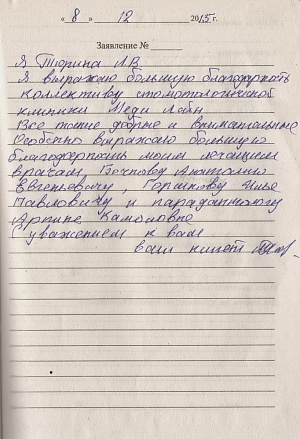 « 8 » 12 2015 г.
Заявление №
Я Тюрина Л.В
Я выражаю большую благодарность
коллективу стоматологической
клиники Меди Лайн.
Все такие добрые и внимательные
Особенно выражаю большую
благодарность моим лечащим
врачам,
Евгеньевичу, Горшкову Илье
Павловичу и парадантологу
Арпине
С уважением к вам
ваш клиент